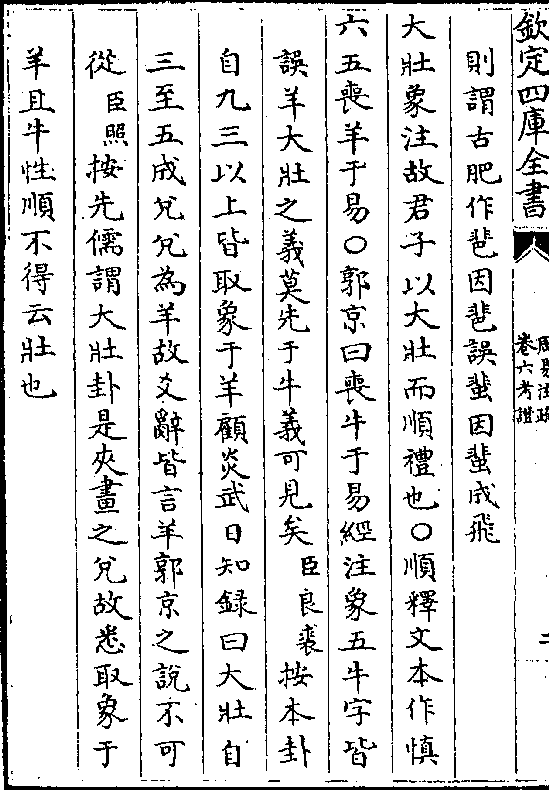 欽定四庫全書
卷六考證
則謂古肥作𦫸因𦫸誤蜚因蜚成飛
大壯象注故君子以大壯而順禮也○順釋文本作慎
六五喪羊于易○郭京曰喪牛于易經注象五牛字皆
誤羊大壯之義莫先于牛義可見矣臣良裘按本卦
自九三以上皆取象于羊顧炎武日知録曰大壯自
三至五成兌兌為羊故爻辭皆言羊郭京之說不可
從臣照按先儒謂大壯卦是夾畫之兌故悉取象于
羊且牛性順不得云壯也